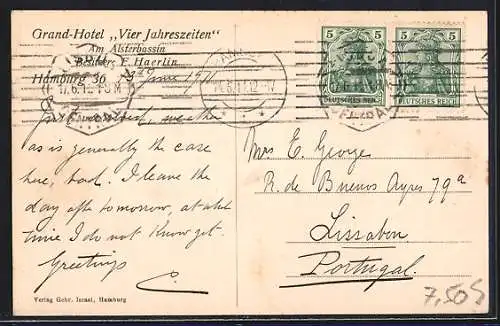 Grand-Hotel „Vier Jahreszeiten"
Am Alsterbassin
Besitzers F. Haerlin
Hamburg 36 June 1911
weather
as is generally the case
here, bad. I leave the
day after tomorrow, at what
time I do not know yet.
Greetings
C.
Verlag Gebr. Israel, Hamburg
5 5
5 5
DEUTSCHES REICH
DEUTSCHES REICH
Mrs E. George
R. de Buenos Ayres 79a
Lissabon
Portugal.
7,50